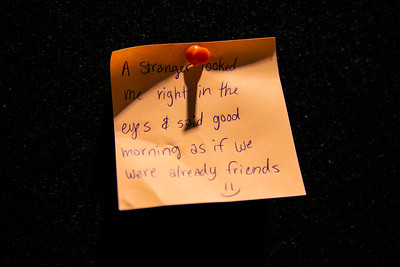 A stranger looked
me right in the
eyes & said good
morning as if we
were already friends